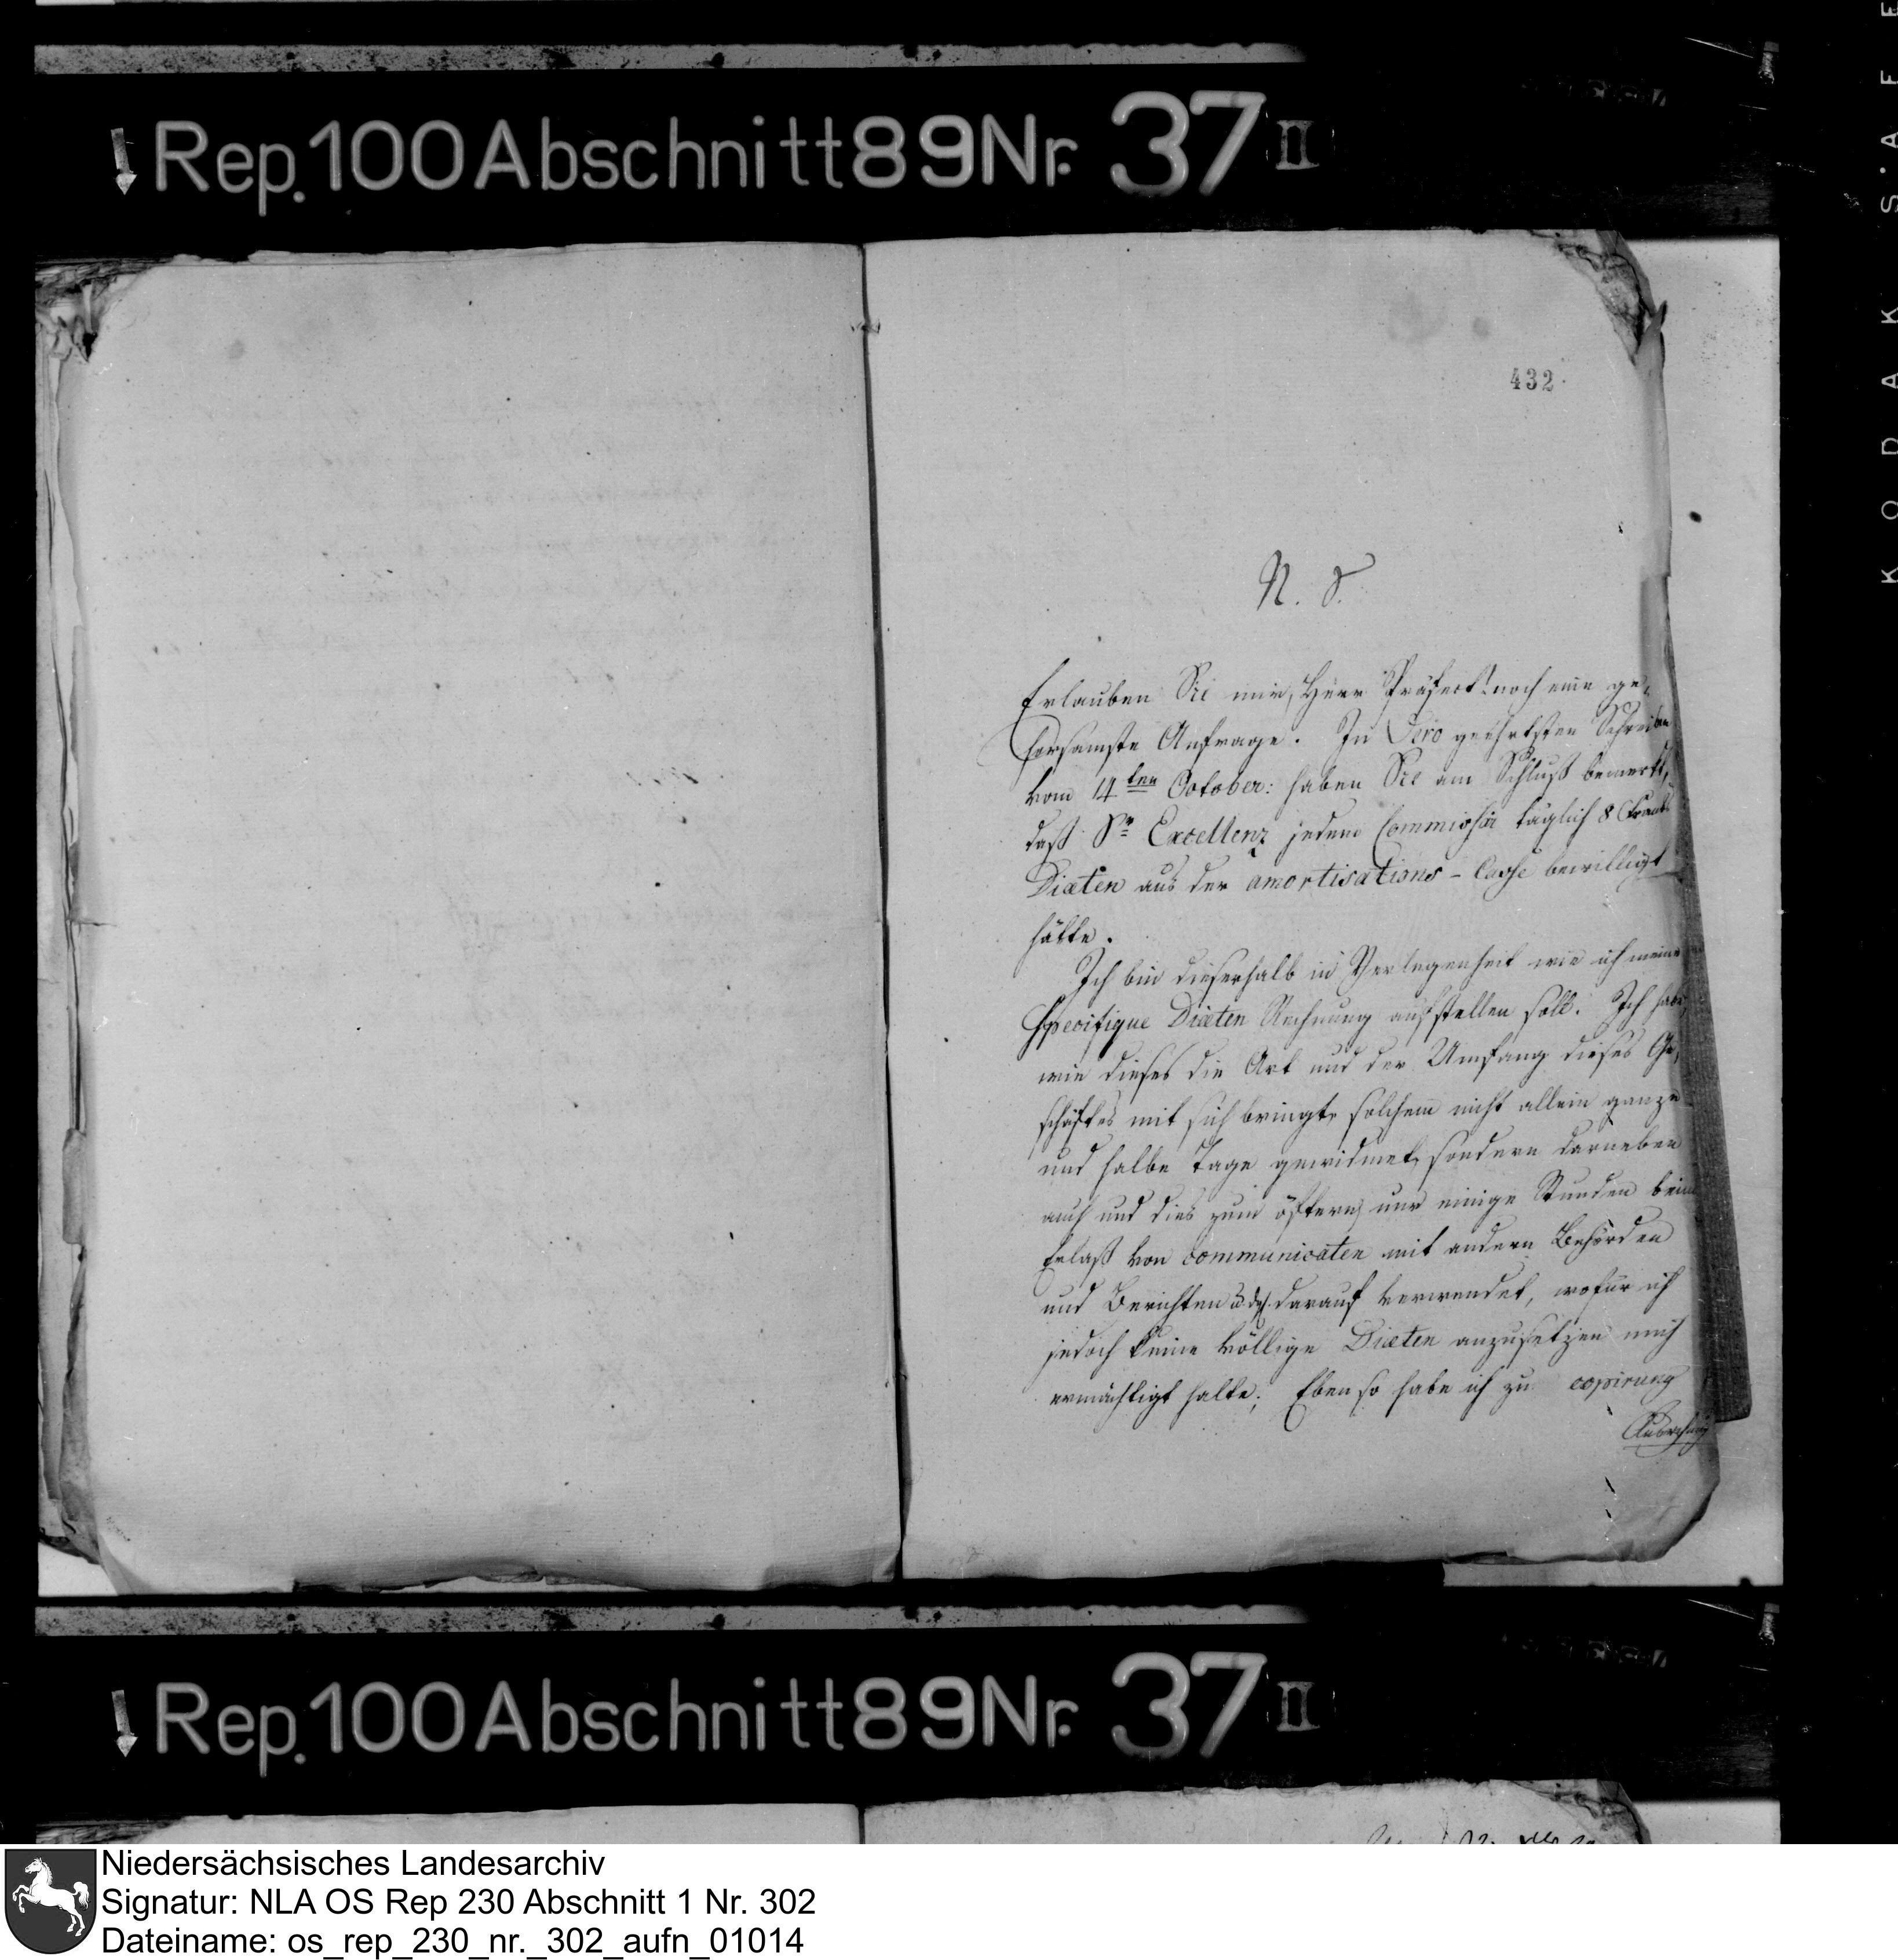 Rep. 100 Abschnitt 89 Nr. 37 II
432.
N. S.
Erlauben Sie mir, Herr Präfect! noch eine ge-
horsamste Anfrage. In Dero geehrtsten Schreiben
vom 14ten October: haben Sie am Schluß bemerkt,
daß Sr. Excellenz jedem Commissair täglich 8 Franks
Diæten aus der amortisations-Casse bewilligt
hätte.
Ich bin dieserhalb in Verlegenheit wie ich meine
Specifique Diæten Rechnung aufstellen soll. Ich habe,
wie dieses die Art und der Umfang dieses Ge,
schäftes mit sich bringt, solchem nicht allein ganze
und halbe Tage gewidmet, sondern darneben
auch und dies zum öftern, nur einige Stunden beim
Erlaß von communicaten mit andern Behörden
und Berichten u. dgl. darauf verwendet, wofür ich
jedoch keine völlige Diæten anzusetzen mich
ermächtigt halte; Eben so habe ich zu copirung
KODAK S.AFE
Rep. 100 Abschnitt 89 Nr. 37 II
Niedersächsisches Landesarchiv
Signatur: NLA OS Rep 230 Abschnitt 1 Nr. 302
Dateiname: os_rep_230_nr._302_aufn_01014